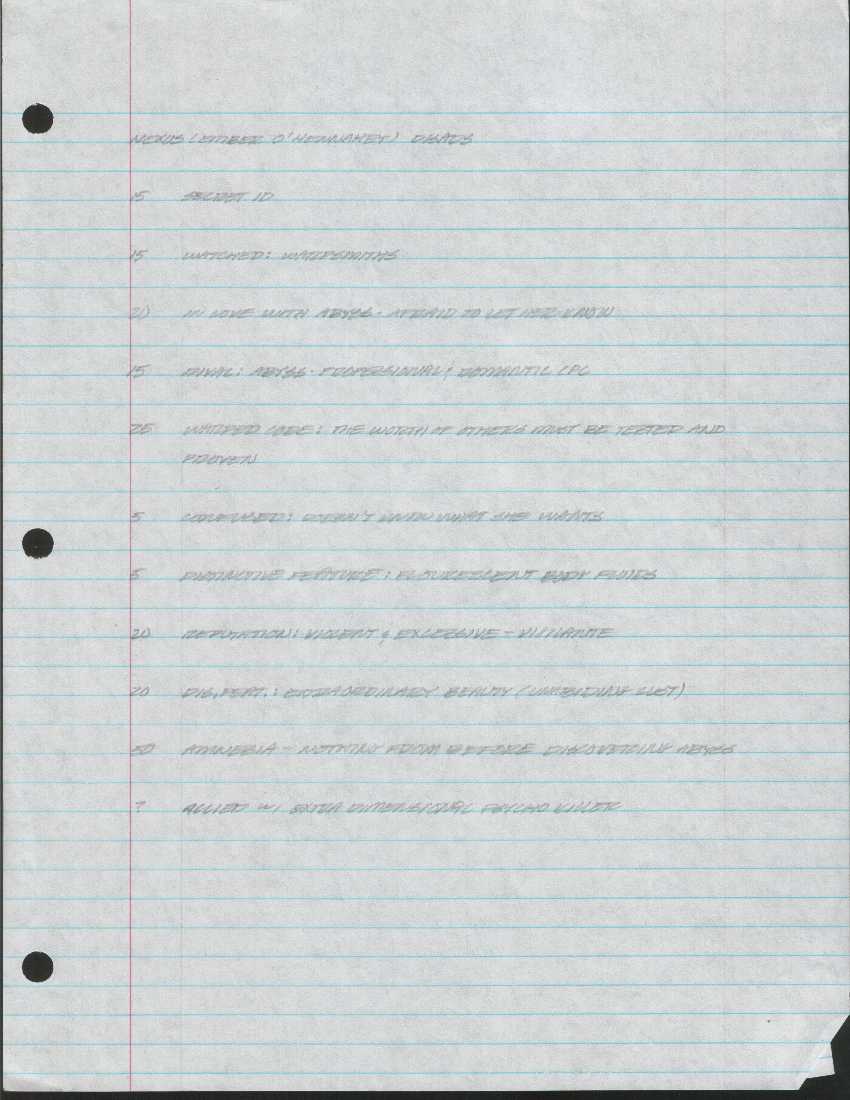 NEXUS (EMBER O'HENNAHEY) DISADS
15 SECRET ID
15 WATCHED: WARPSMITHS
20 IN LOVE WITH ABYSS - AFRAID TO LET HER KNOW
15 RIVAL: ABYSS - PROFESSIONAL & ROMANTIC (PC)
25 WARPED CODE: THE WORTH OF OTHERS MUST BE TESTED AND
PROVEN
5 CONFUSED: DOESN'T KNOW WHAT SHE WANTS
5 DISTINCTIVE FEATURE: FLOURESCENT BODY FLUIDS
20 REPUTATION: VIOLENT & EXCESSIVE - VIGILANTE
20 DIS. FEAT.: EXTRAORDINARY BEAUTY (UNABIDING LUST)
50 AMNESIA - NOTHING FROM BEFORE DISCOVERING ABYSS
? ALLIED W/ EXTRA DIMENSIONAL PSYCHO KILLER